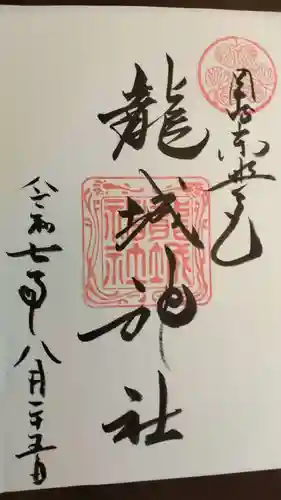 岡崎東照宮
龍城神社
令和七年八月二十五日
龍城神社